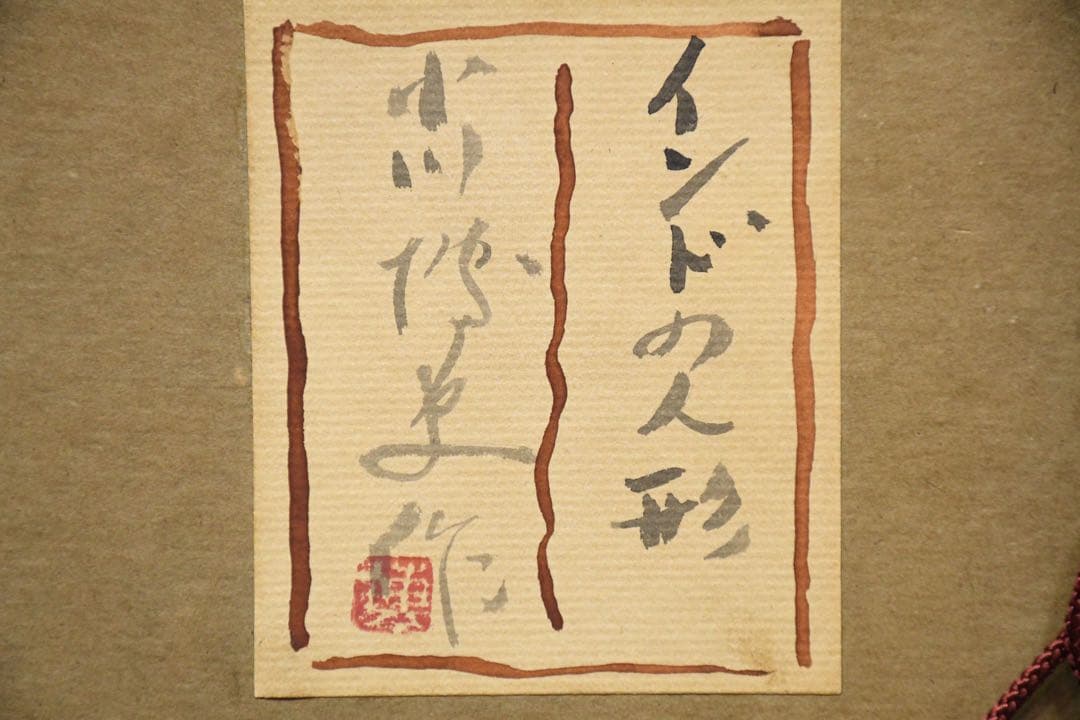 インドの人形
小川博史作